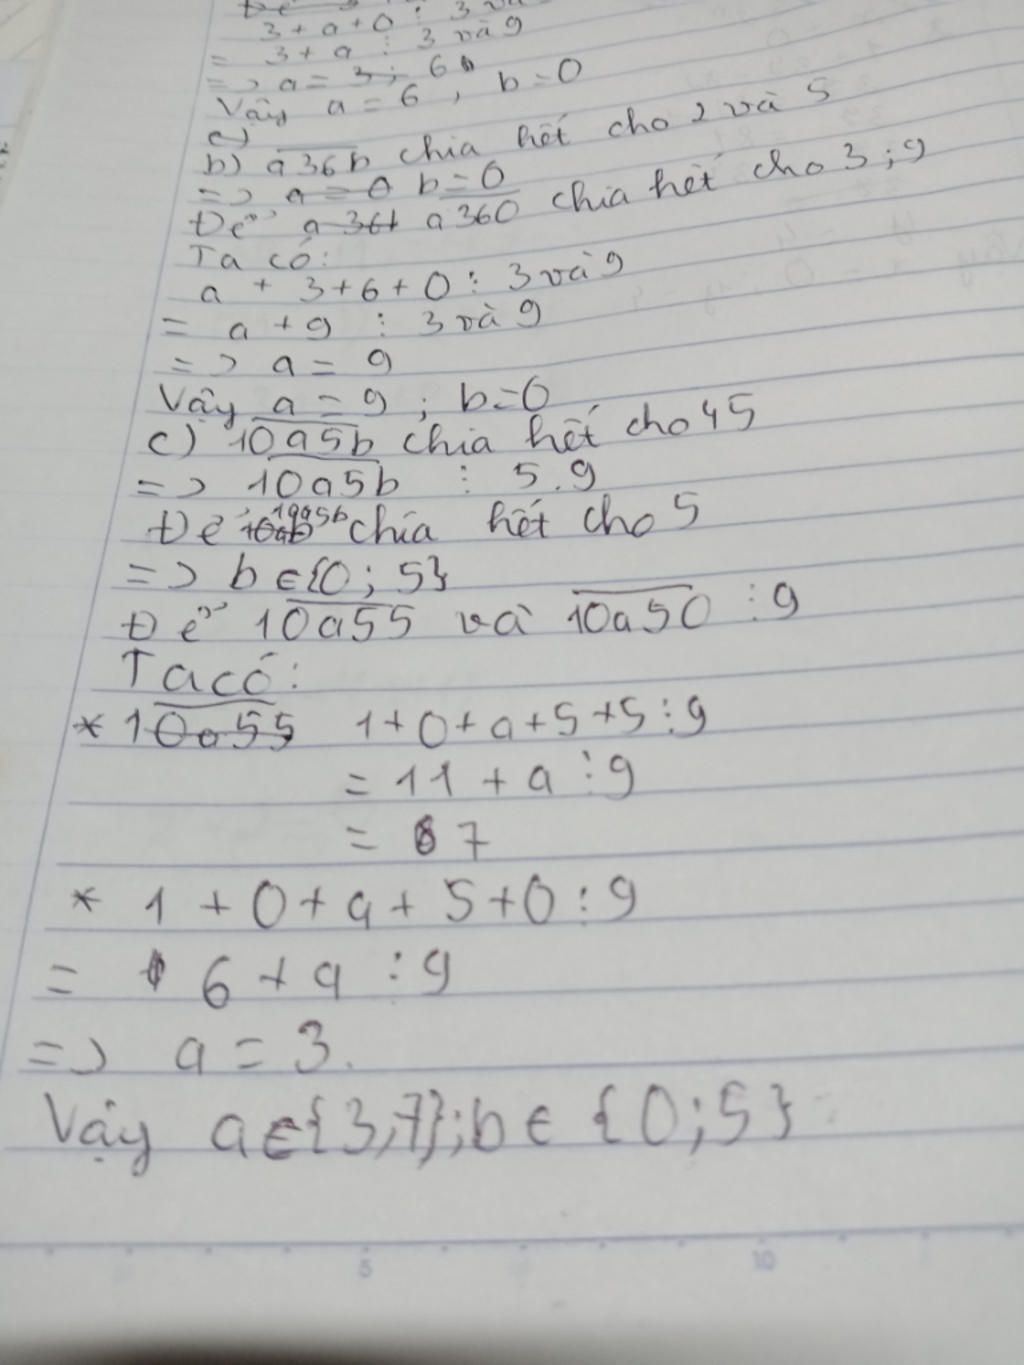 3 + a + 0 ⋮ 3 và
= 3 + a ⋮ 3 và 9
=> a = 3; 6
Vậy a = 6, b = 0
c)
b) a36b chia hết cho 2 và 5
=> a = 0 b = 0
Để a 36 a360 chia hết cho 3; 9
Ta có:
a + 3 + 6 + 0 ⋮ 3 và 9
= a + 9 ⋮ 3 và 9
=> a = 9
Vậy a = 9; b = 0
c) 10a5b chia hết cho 45
=> 10a5b ⋮ 5.9
Để 10a5b chia hết cho 5
=> b ∈ {0; 5}
Để 10a55 và 10a50 ⋮ 9
Ta có:
* 10a55 1 + 0 + a + 5 + 5 ⋮ 9
= 11 + a ⋮ 9
= 7
* 1 + 0 + a + 5 + 0 ⋮ 9
= 6 + a ⋮ 9
=> a = 3.
Vậy a ∈ {3, 7}; b ∈ {0; 5}
5 10